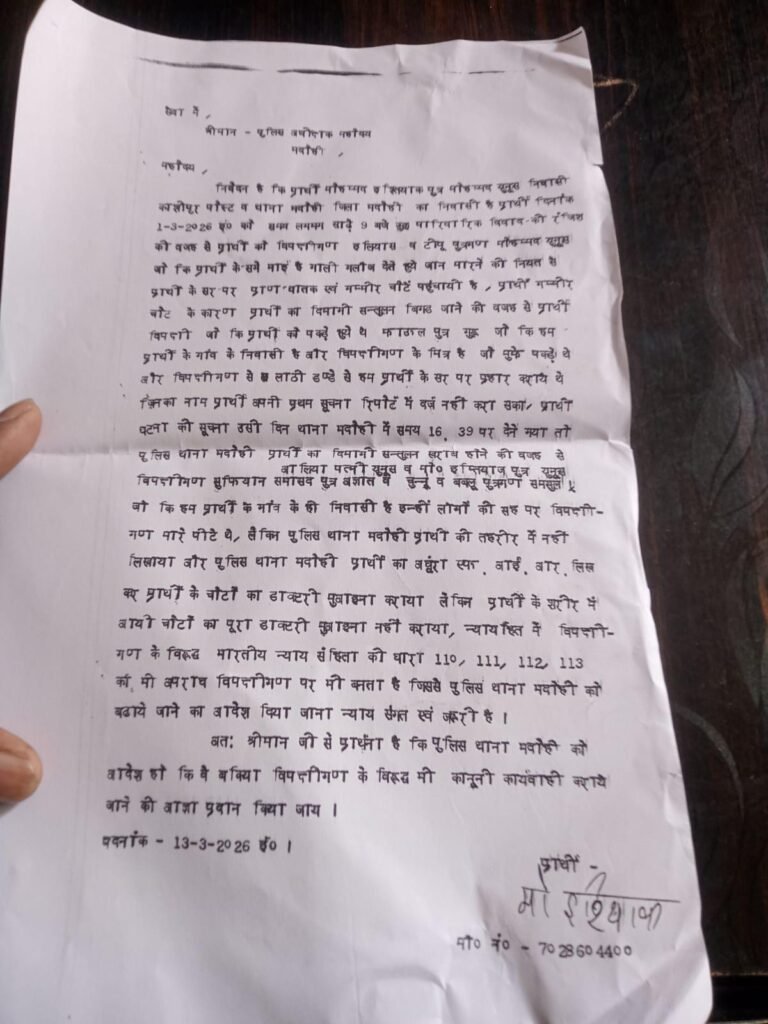 सेवा में,
श्रीमान - पुलिस अधीक्षक महोदय
भदोही,
महोदय,
निवेदन है कि प्रार्थी मोहम्मद इश्तियाक पुत्र मोहम्मद यूनुस निवासी
काशीपुर पोस्ट व थाना भदोही जिला भदोही का निवासी है प्रार्थी दिनांक
1-3-2026 ई० को समय लगभग साढ़े 9 बजे कुछ पारिवारिक विवाद की रंजिश
की वजह से प्रार्थी को विपक्षीगण इलियास व टीपू पुत्रगण मोहम्मद यूनुस
जो कि प्रार्थी के सगे भाई है गाली गलौज देते हुये जान मारने की नियत से
प्रार्थी के सर पर प्राण घातक एवं गम्भीर चोटें पहुंचायी है, प्रार्थी गम्भीर
चोट के कारण प्रार्थी का दिमागी सन्तुलन बिगड जाने की वजह से प्रार्थी
विपक्षी जो कि प्रार्थी को पकड़े हुये थे पुत्र जो कि हम
प्रार्थी के गांव के निवासी है और विपक्षीगण के मित्र है जो मुझे पकड़े थे
और विपक्षीगण से लाठी डण्डे से हम प्रार्थी के सर पर प्रहार कराये थे
जिनका नाम प्रार्थी अपनी प्रथम सूचना रिपोर्ट में दर्ज नहीं करा सका, प्रार्थी
घटना की सूचना उसी दिन थाना भदोही में समय 16, 39 पर देने गया तो
पुलिस थाना भदोही प्रार्थी का दिमागी सन्तुलन खराब होने की वजह से
आलिया पत्नी यूनुस व मो० इम्तियाज पुत्र यूनुस
विपक्षीगण सुफियान सभासद पुत्र व चुन्नू व बबलू पुत्रगण समसुल
जो कि हम प्रार्थी के गांव के ही निवासी है इन्हीं लोगों की सह पर विपक्षी-
गण मारे पीटे थे, लेकिन पुलिस थाना भदोही प्रार्थी की तहरीर में नहीं
लिखाया और पुलिस थाना भदोही प्रार्थी का अधूरा एफ. आई. आर. लिख
कर प्रार्थी के चोटों का डाक्टरी मुआइना कराया लेकिन प्रार्थी के शरीर में
आयी चोटों का पूरा डाक्टरी मुआइना नहीं कराया, न्यायहित में विपक्षी-
गण के विरूद्ध भारतीय न्याय संहिता की धारा 110, 111, 112, 113
का भी अपराध विपक्षीगण पर भी बनता है जिससे पुलिस थाना भदोही को
बढाये जाने का आदेश दिया जाना न्याय संगत एवं जरूरी है।
अतः श्रीमान जी से प्रार्थना है कि पुलिस थाना भदोही को
आदेश हो कि वे बकिया विपक्षीगण के विरूद्ध भी कानूनी कार्यवाही कराये
जाने की आज्ञा प्रदान किया जाय।
दिनांक - 13-3-2026 ई०।
प्रार्थी -
मो इश्तियाक
मो० नं० - 7028604400